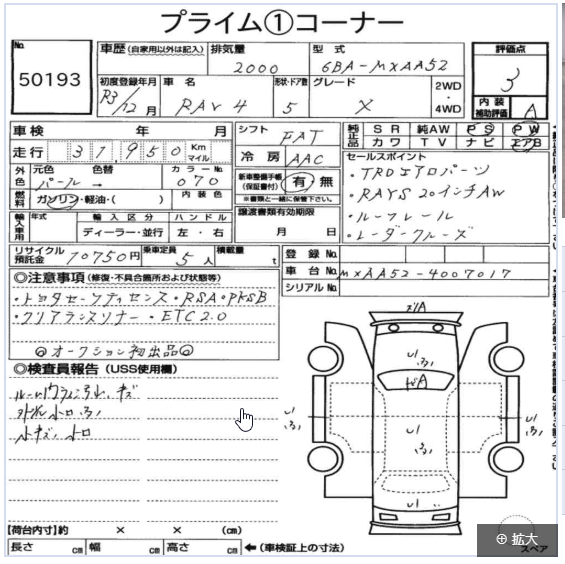 プライム①コーナー
No.
50193
車歴(自家用以外は記入)
排気量
2000
型式
6BA-MXAA52
評価点
3
初度登録年月
R3/12月
車名
RAV4
形状・ドア数
5
グレード
X
2WD
・
4WD
内装
補助評価
A
車検 年 月
シフト
FAT
純正品
SR 純AW PS PW
カワ TV ナビ エアB
走行 31,950 Km
マイル
冷房
AAC
セールスポイント
・TRDエアロパーツ
・RAYS 20インチAW
・ルーフレール
・レーダークルーズ
外色
元色 色替
パール →
カラーNo.
070
新車整備手帳
(保証書付)
有・無
※書類と一緒に保管下さい。
燃料
ガソリン・軽油・( )
内装色
譲渡書類有効期限
月 日
輸入車用
年式
輸入区分
ディーラー・並行
ハンドル
左・右
リサイクル
預託金
10750円
乗車定員
5人
積載量
t
登録No.
車台No.
MXAA52-4007017
シリアルNo.
◎注意事項(修復・不具合箇所および状態等)
・トヨタセーフティセンス・RSA・PKSB
・クリアランスソナー・ETC2.0
◎オークション初出品◎
◎検査員報告(USS使用欄)
キズ
小キズ、小凹
【荷台内寸】約 × × (cm)
長さ cm 幅 cm 高さ cm
←(車検証上の寸法)
スペア
拡大